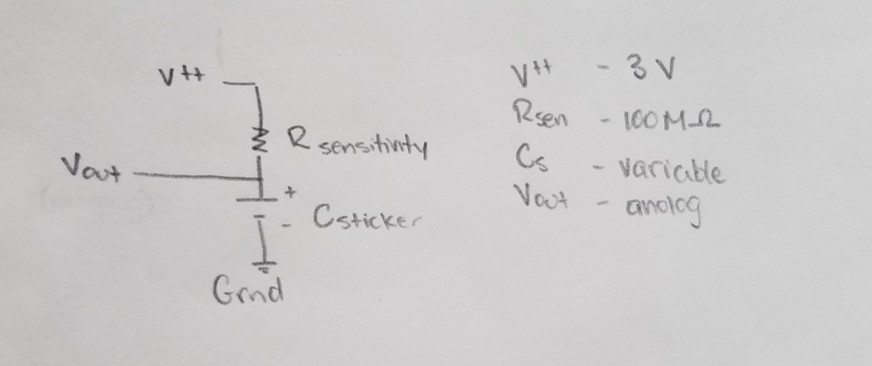 V++
R sensitivity
Vout
+
- Csticker
Grnd
V++ - 3 V
Rsen - 100MΩ
Cs - variable
Vout - analog